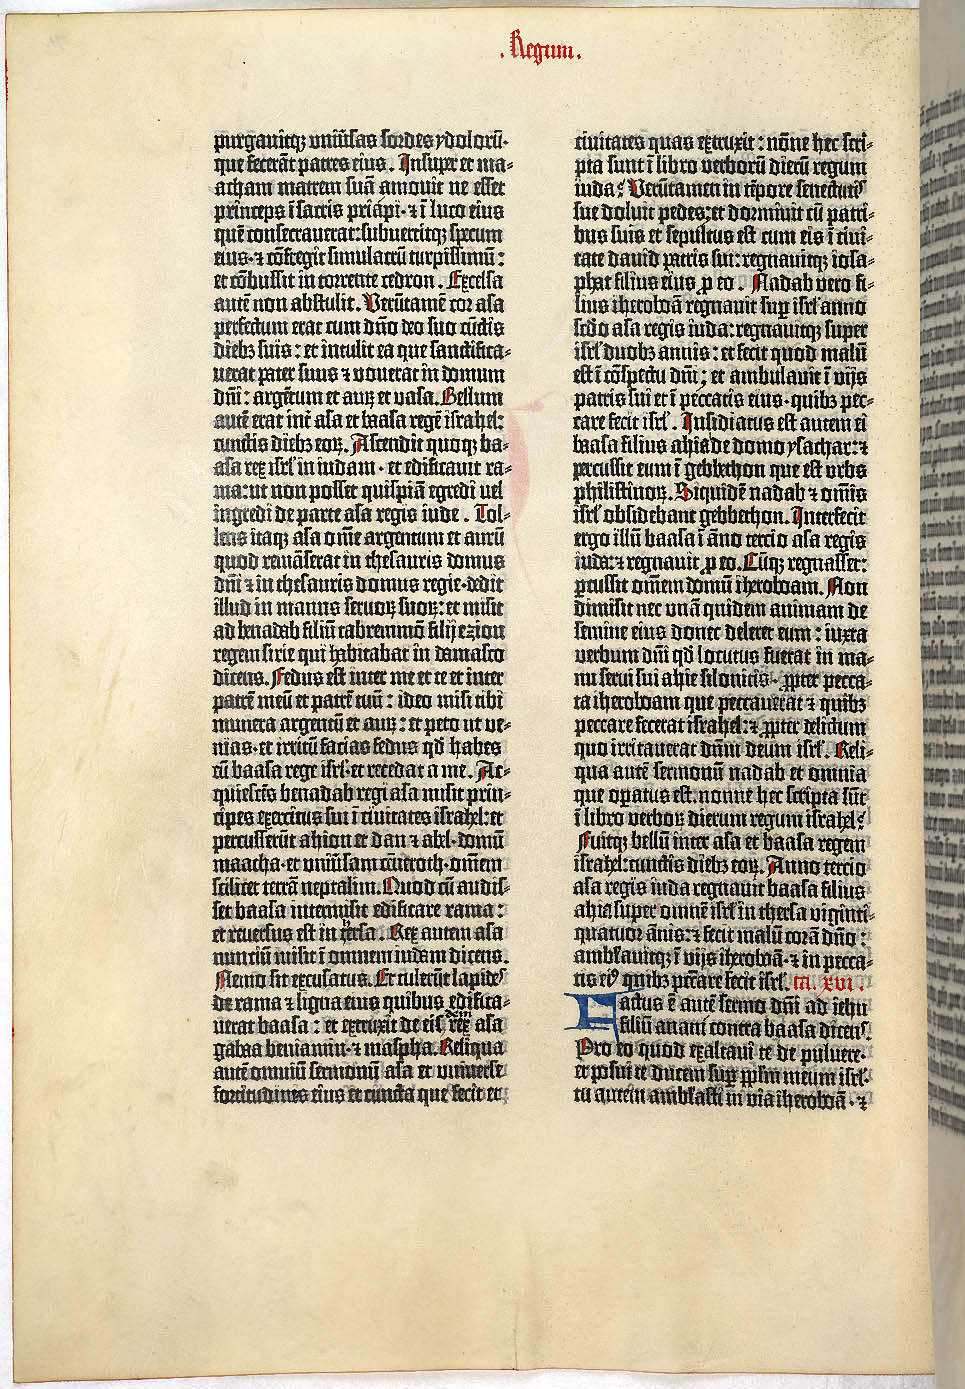 . Regum .
purgauitqꝫ uniūsas sordes ydolorū·
que fecerāt patres eius . Insuper et ma-
acham matrem suā amouit ne esset
princeps ī sacris priapi·⁊ ī luco eius
quē consecrauerat:subuertitqꝫ specum
eius·⁊ cōfregit simulacrū turpissimū:
et cōbussit in torrente cedron . Excelsa
autē non abstulit . Verūtamē cor asa
perfectum erat cum dn̄o deo suo cūctis
diebꝫ suis: et intulit ea que sanctifica-
uerat pater suus ⁊ uouerat in domum
dn̄i: argētum et auꝝ et uasa. Bellum
autē erat int̄ asa et baasa regē israhel:
cunctis diebꝫ eoꝝ. Ascendit quoqꝫ ba-
asa rex isrl̓ in iudam · et edificauit ra-
ma:ut non posset quispiā egredi uel
ingredi de parte asa regis iude . Tol-
lens itaqꝫ asa om̄e argentum et aurū
quod remāserat in thesauris domus
dn̄i ⁊ in thesauris domus regie·dedit
illud in manus seruoꝝ suoꝝ:et misit
ad benadab filiū tabremmō filij ezion
regem sirie qui habitabat in damasco
dicens. Fedus est inter me et te et inter
patrē meū et patrē tuū : ideo misi tibi
munera argentū et auꝝ: et peto ut ue-
nias·et irritū facias fedus qd̓ habes
cū baasa rege isrl̓·et recedat a me . Ac-
quiescēs benadab regi asa misit prin-
cipes exercitus sui ī ciuitates israhel:et
percusserūt ahion et dan ⁊ abel·domū
maacha·et uniūsam cēneroth·om̄em
scilicet terrā neptalim. Quod cū audis-
set baasa intermisit edificare rama:
et reuersus est in thersa . Rex autem asa
nunciū misit ī omnem iudam dicens.
Nemo sit excusatus. Et tulerūt lapides
de rama ⁊ ligna eius quibus edifica-
uerat baasa : et extruxit de eisdem rex asa
gabaa beniamin·⁊ maspha. Reliqua
autē omniū sermonū asa et uniuerse
fortitudines eius et cuncta que fecit et
ciuitates quas extruxit : nōne hec scri-
pta sunt ī libro uerborū dierū regum
iuda? Verūtamen in tp̄ore senectutis
sue doluit pedes:et dormiuit cū patri-
bus suis et sepultus est cum eis ī ciui-
tate dauid patris sui: regnauitqꝫ iosa-
phat filius eius ꝓ eo . Nadab uero fi-
lius iheroboā regnauit suꝑ isrl̓ anno
scd̓o asa regis iuda:regnauitqꝫ super
isrl̓ duobꝫ annis: et fecit quod malū
est ī cōspectu dn̄i; et ambulauit ī vijs
patris sui et ī peccatis eius·quibꝫ pec-
care fecit isrl̓ . Insidiatus est autem ei
baasa filius ahia de domo ysachar:⁊
percussit eum ī gebbethon que est urbs
philistinoꝝ. Siquidē nadab ⁊ om̄is
isrl̓ obsidebant gebbethon. Interfecit
ergo illū baasa ī āno tercio asa regis
iuda:⁊ regnauit ꝓ eo. Cūqꝫ regnasset:
ꝑcussit om̄em domū iheroboam. Non
dimisit nec unā quidem animam de
semine eius donec deleret eum : iuxta
uerbum dn̄i qd̓ locutus fuerat in ma-
nu serui sui ahie silonitis· ꝓpter pecca-
ta iheroboam que peccauerat ⁊ quibꝫ
peccare fecerat israhel:⁊ ꝓpter delictum
quo irritauerat dn̄m deum isrl̓. Reli-
qua autē sermonū nadab et omnia
que oꝑatus est. nonne hec scripta sūt
ī libro uerboꝝ dierum regum israhel?
Fuitqꝫ bellū inter asa et baasa regem
israhel:cunctis diebꝫ eoꝝ. Anno tercio
asa regis iuda regnauit baasa filius
ahia super omnē isrl̓ in thersa viginti-
quatuor ānis:⁊ fecit malū corā dn̄o:
ambl̓auitqꝫ ī vijs iheroboā·⁊ in pecca-
tis eiꝰ quibꝫ pec̄care fecit isrl̓. ca. xvi .
Factus ē autē sermo dn̄i ad iehu
filiū anani contra baasa dicens.
Pro eo quod exaltaui te de puluere·
et posui te ducem suꝑ pp̄lm meum isrl̓.
tu autem ambl̓asti in via iheroboā · ⁊